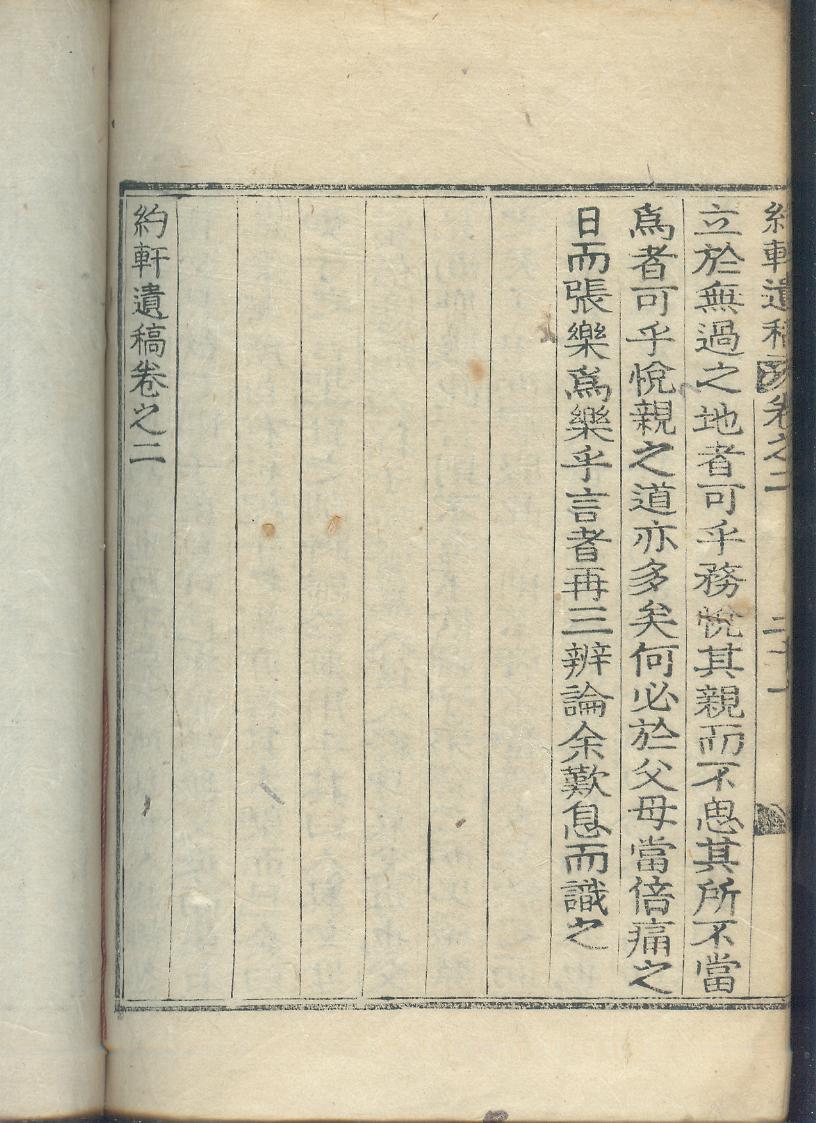 約軒遺稿卷之二
立於無過之地者可乎務悅其親而不思其所不當
爲者可乎悅親之道亦多矣何必於父母當倍痛之
日而張樂爲樂乎言者再三辨論余歎息而識之
約軒遺稿卷之二